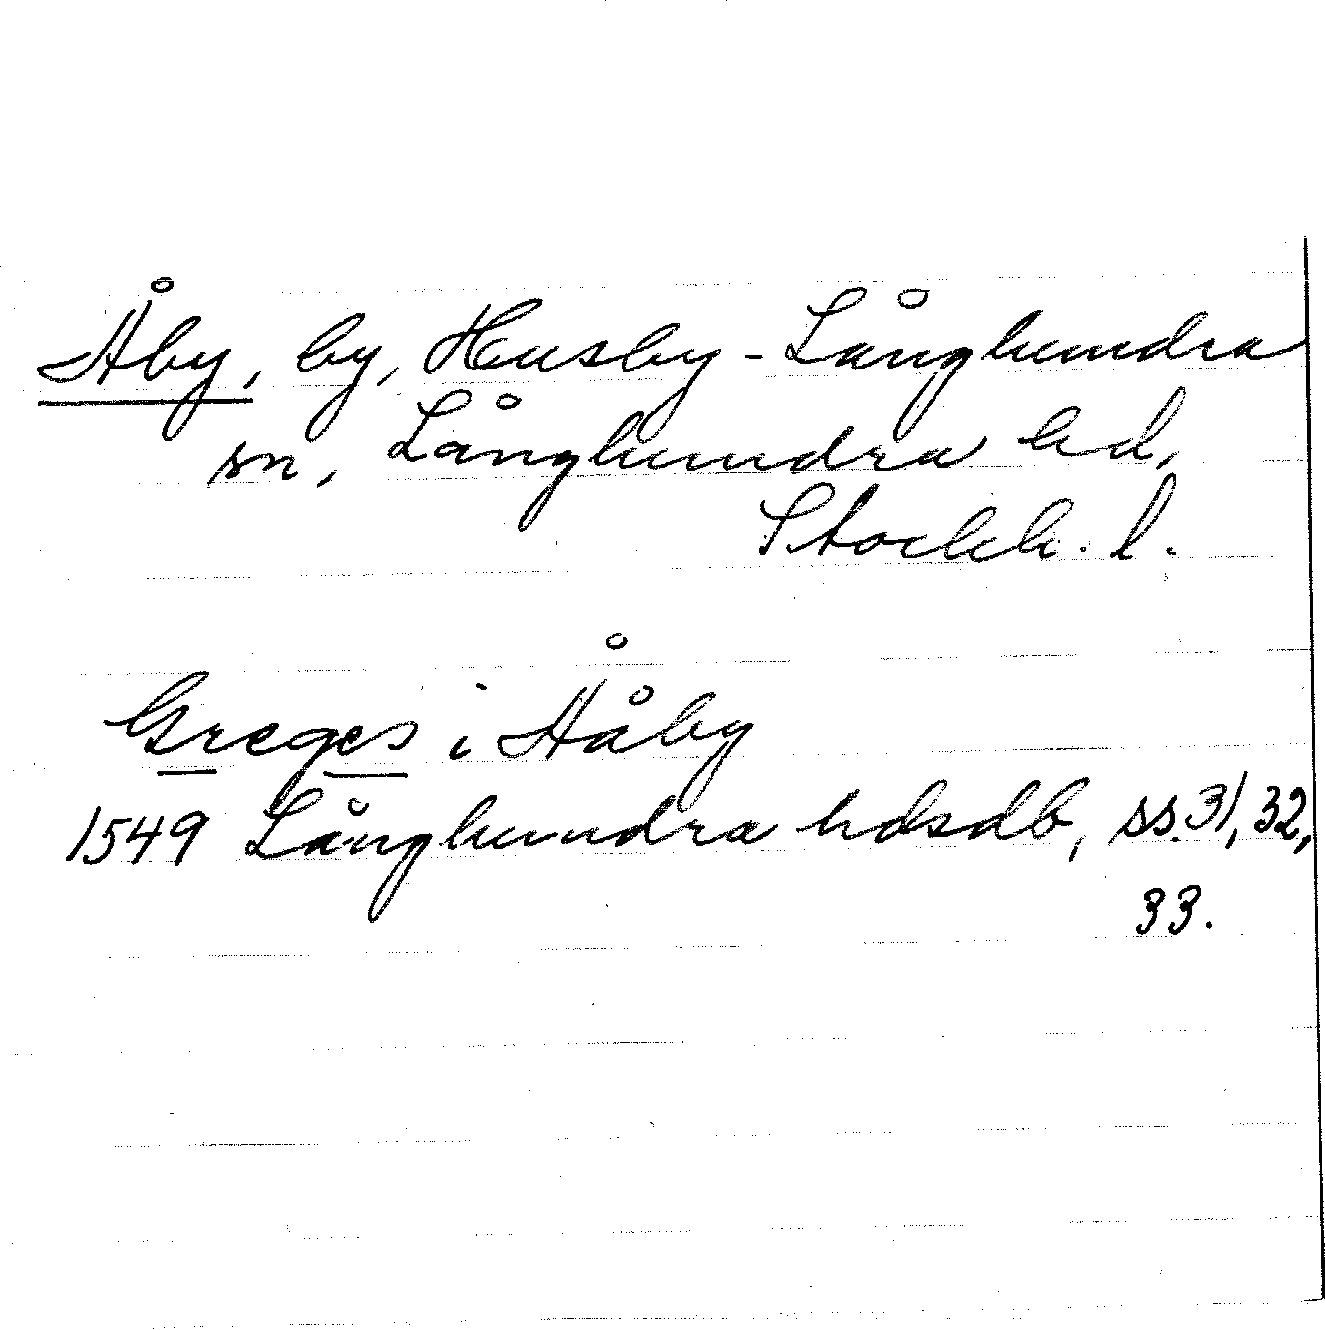 Åby, by, Husby-Långhundra
sn, Långhundra hd,
Stockh. l.
Greges i Åååby
1549 Långhundra hdsdb, ss. 31, 32,
33.